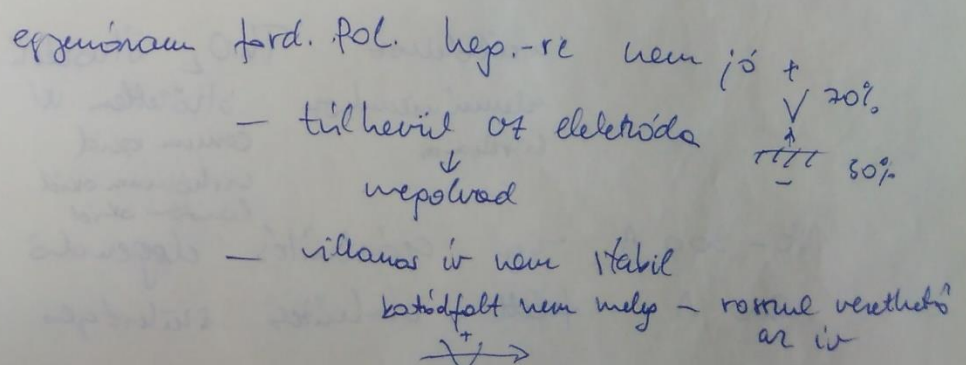 egyenáram ford. pol. heg.-re nem jó +
70%
– túlhevül az elektróda
30%
–
↓
megolvad
– villamos ív nem stabil
katódfolt nem mély – rosszul vezethető
az ív
+